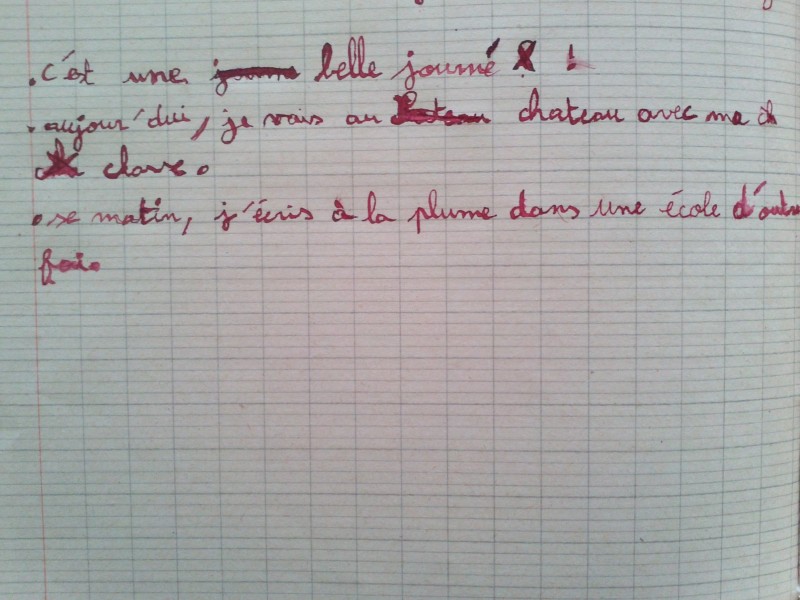 . c'est une belle journé !
. aujour'dui, je vais au chateau avec ma
classe.
. se matin, j'écris à la plume dans une école d'autre
fois